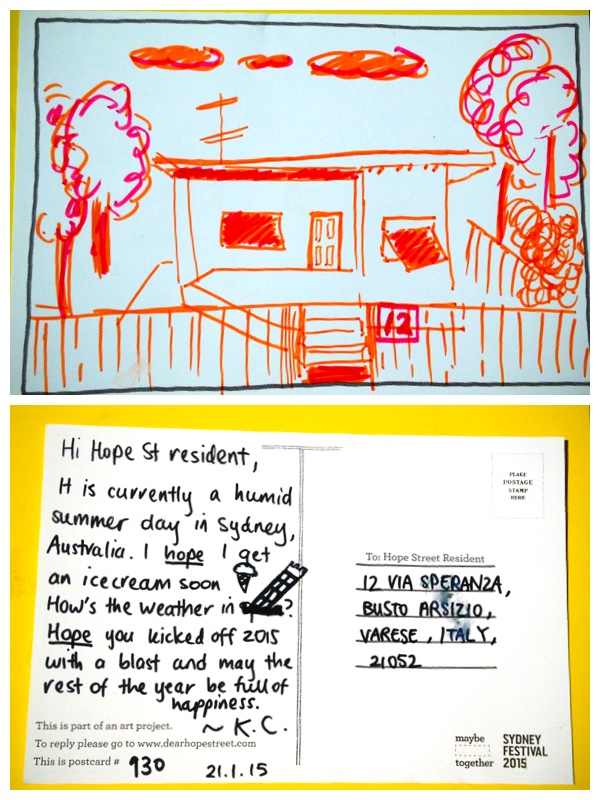 12
Hi Hope St resident,
It is currently a humid
summer day in Sydney,
Australia. I hope I get
an icecream soon
How's the weather in ?
Hope you kicked off 2015
with a blast and may the
rest of the year be full of
happiness.
~ K.C.
This is part of an art project.
To reply please go to www.dearhopestreet.com
This is postcard # 930
21.1.15
PLACE
POSTAGE
STAMP
HERE
To: Hope Street Resident
12 VIA SPERANZA,
BUSTO ARSIZIO,
VARESE, ITALY,
21052
maybe
together
SYDNEY
FESTIVAL
2015